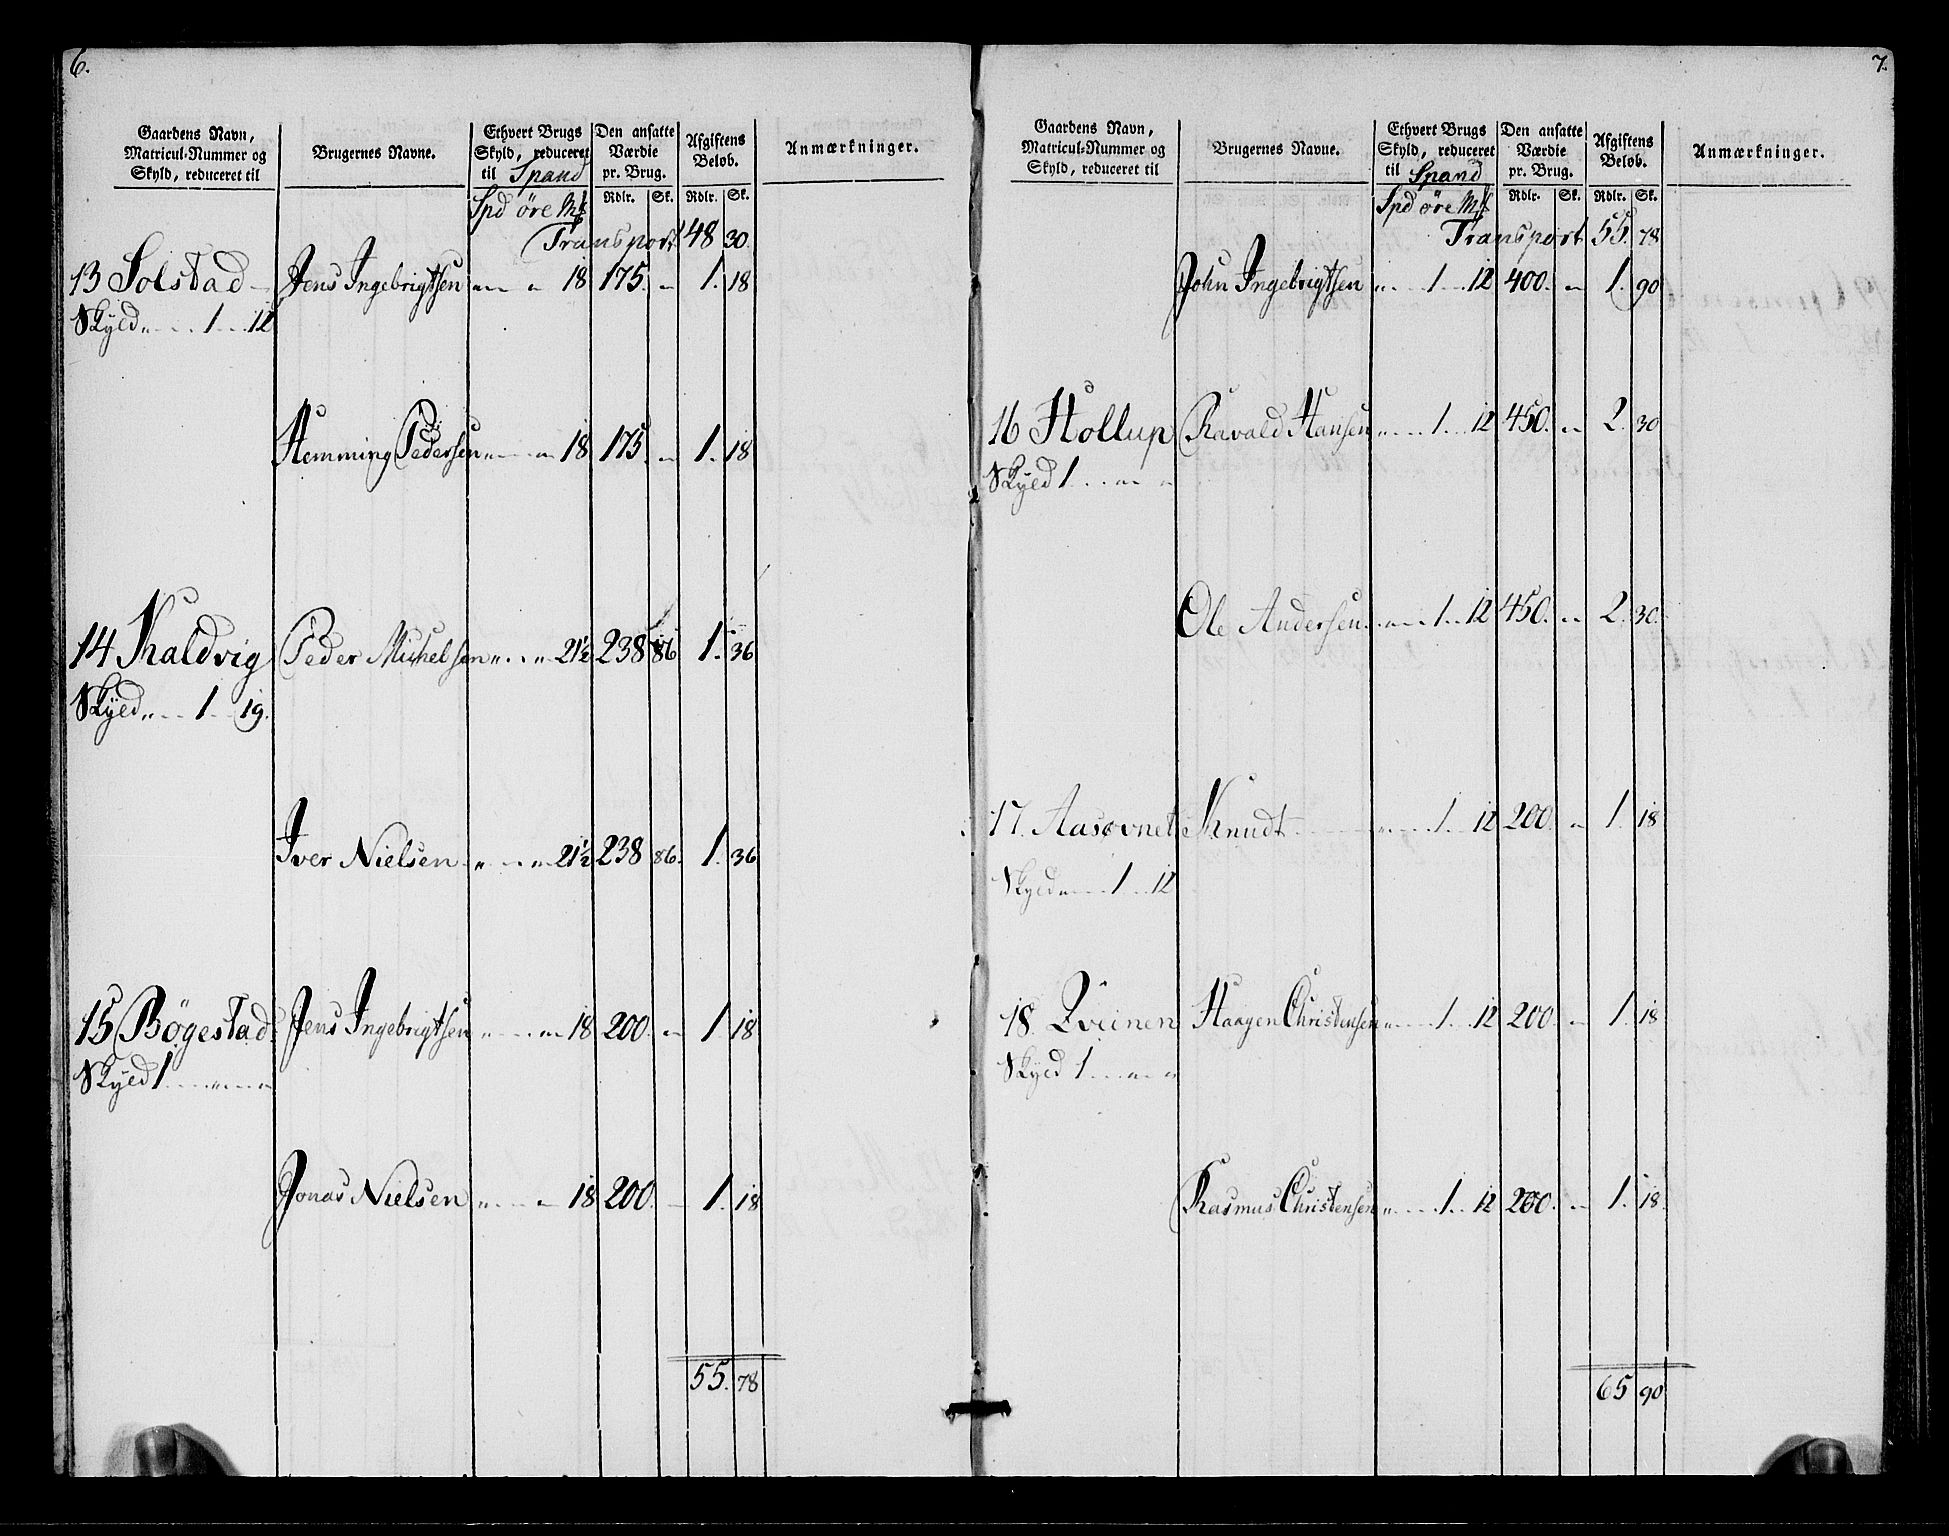 6.
Gaardens Navn, Matricul-Nummer og Skyld, reduceret til
Brugernes Navne.
Ethvert Brugs Skyld, reduceret til Spand
Den ansatte Værdie pr. Brug.
Afgiftens Beløb.
Anmærkninger.
Rdlr. Sk. Rdlr. Sk.
Spd öre Mk
Transport 48 30.
13 Solstad Jens Ingebrigtsen " " 18 175. " 1. 18
Skyld " 1 12
Hemming Pedersen " " 18 175. " 1. 18
14 Kaldvig Peder Michelsen " " 21½ 238 86 1. 36
Skyld " 1 19.
Iver Nielsen " " 21½ 238 86. 1. 36
15 Bøgestad Jens Ingebrigtsen " " 18 200. " 1. 18
Skyld 1 " "
Jonas Nielsen " " 18 200. " 1. 18
55. 78
7.
Gaardens Navn, Matricul-Nummer og Skyld, reduceret til
Brugernes Navne.
Ethvert Brugs Skyld, reduceret til Spand
Den ansatte Værdie pr. Brug.
Afgiftens Beløb.
Anmærkninger.
Rdlr. Sk. Rdlr. Sk.
Spd öre Mk
Transport 55. 78
John Ingebrigtsen " 1 12 400. " 1. 90
16 Hollup Ravald Hansen " 1 12 450. " 2. 30
Skyld 1 " "
Ole Andersen " 1 12 450. " 2. 30.
17. Aasovnet Knudt " 1 12 200. " 1. 18
Skyld " 1 12
18. Qveinen Haagen Christensen " 1 12 200. " 1. 18
Skyld 1 " "
Rasmus Christensen " 1 12 200. " 1. 18.
65 90